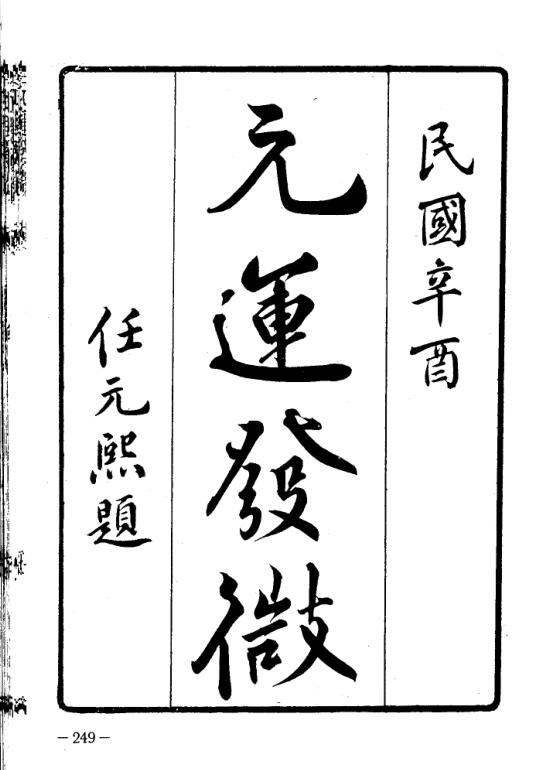 民國辛酉
元運發微
任元熙題
— 249 —